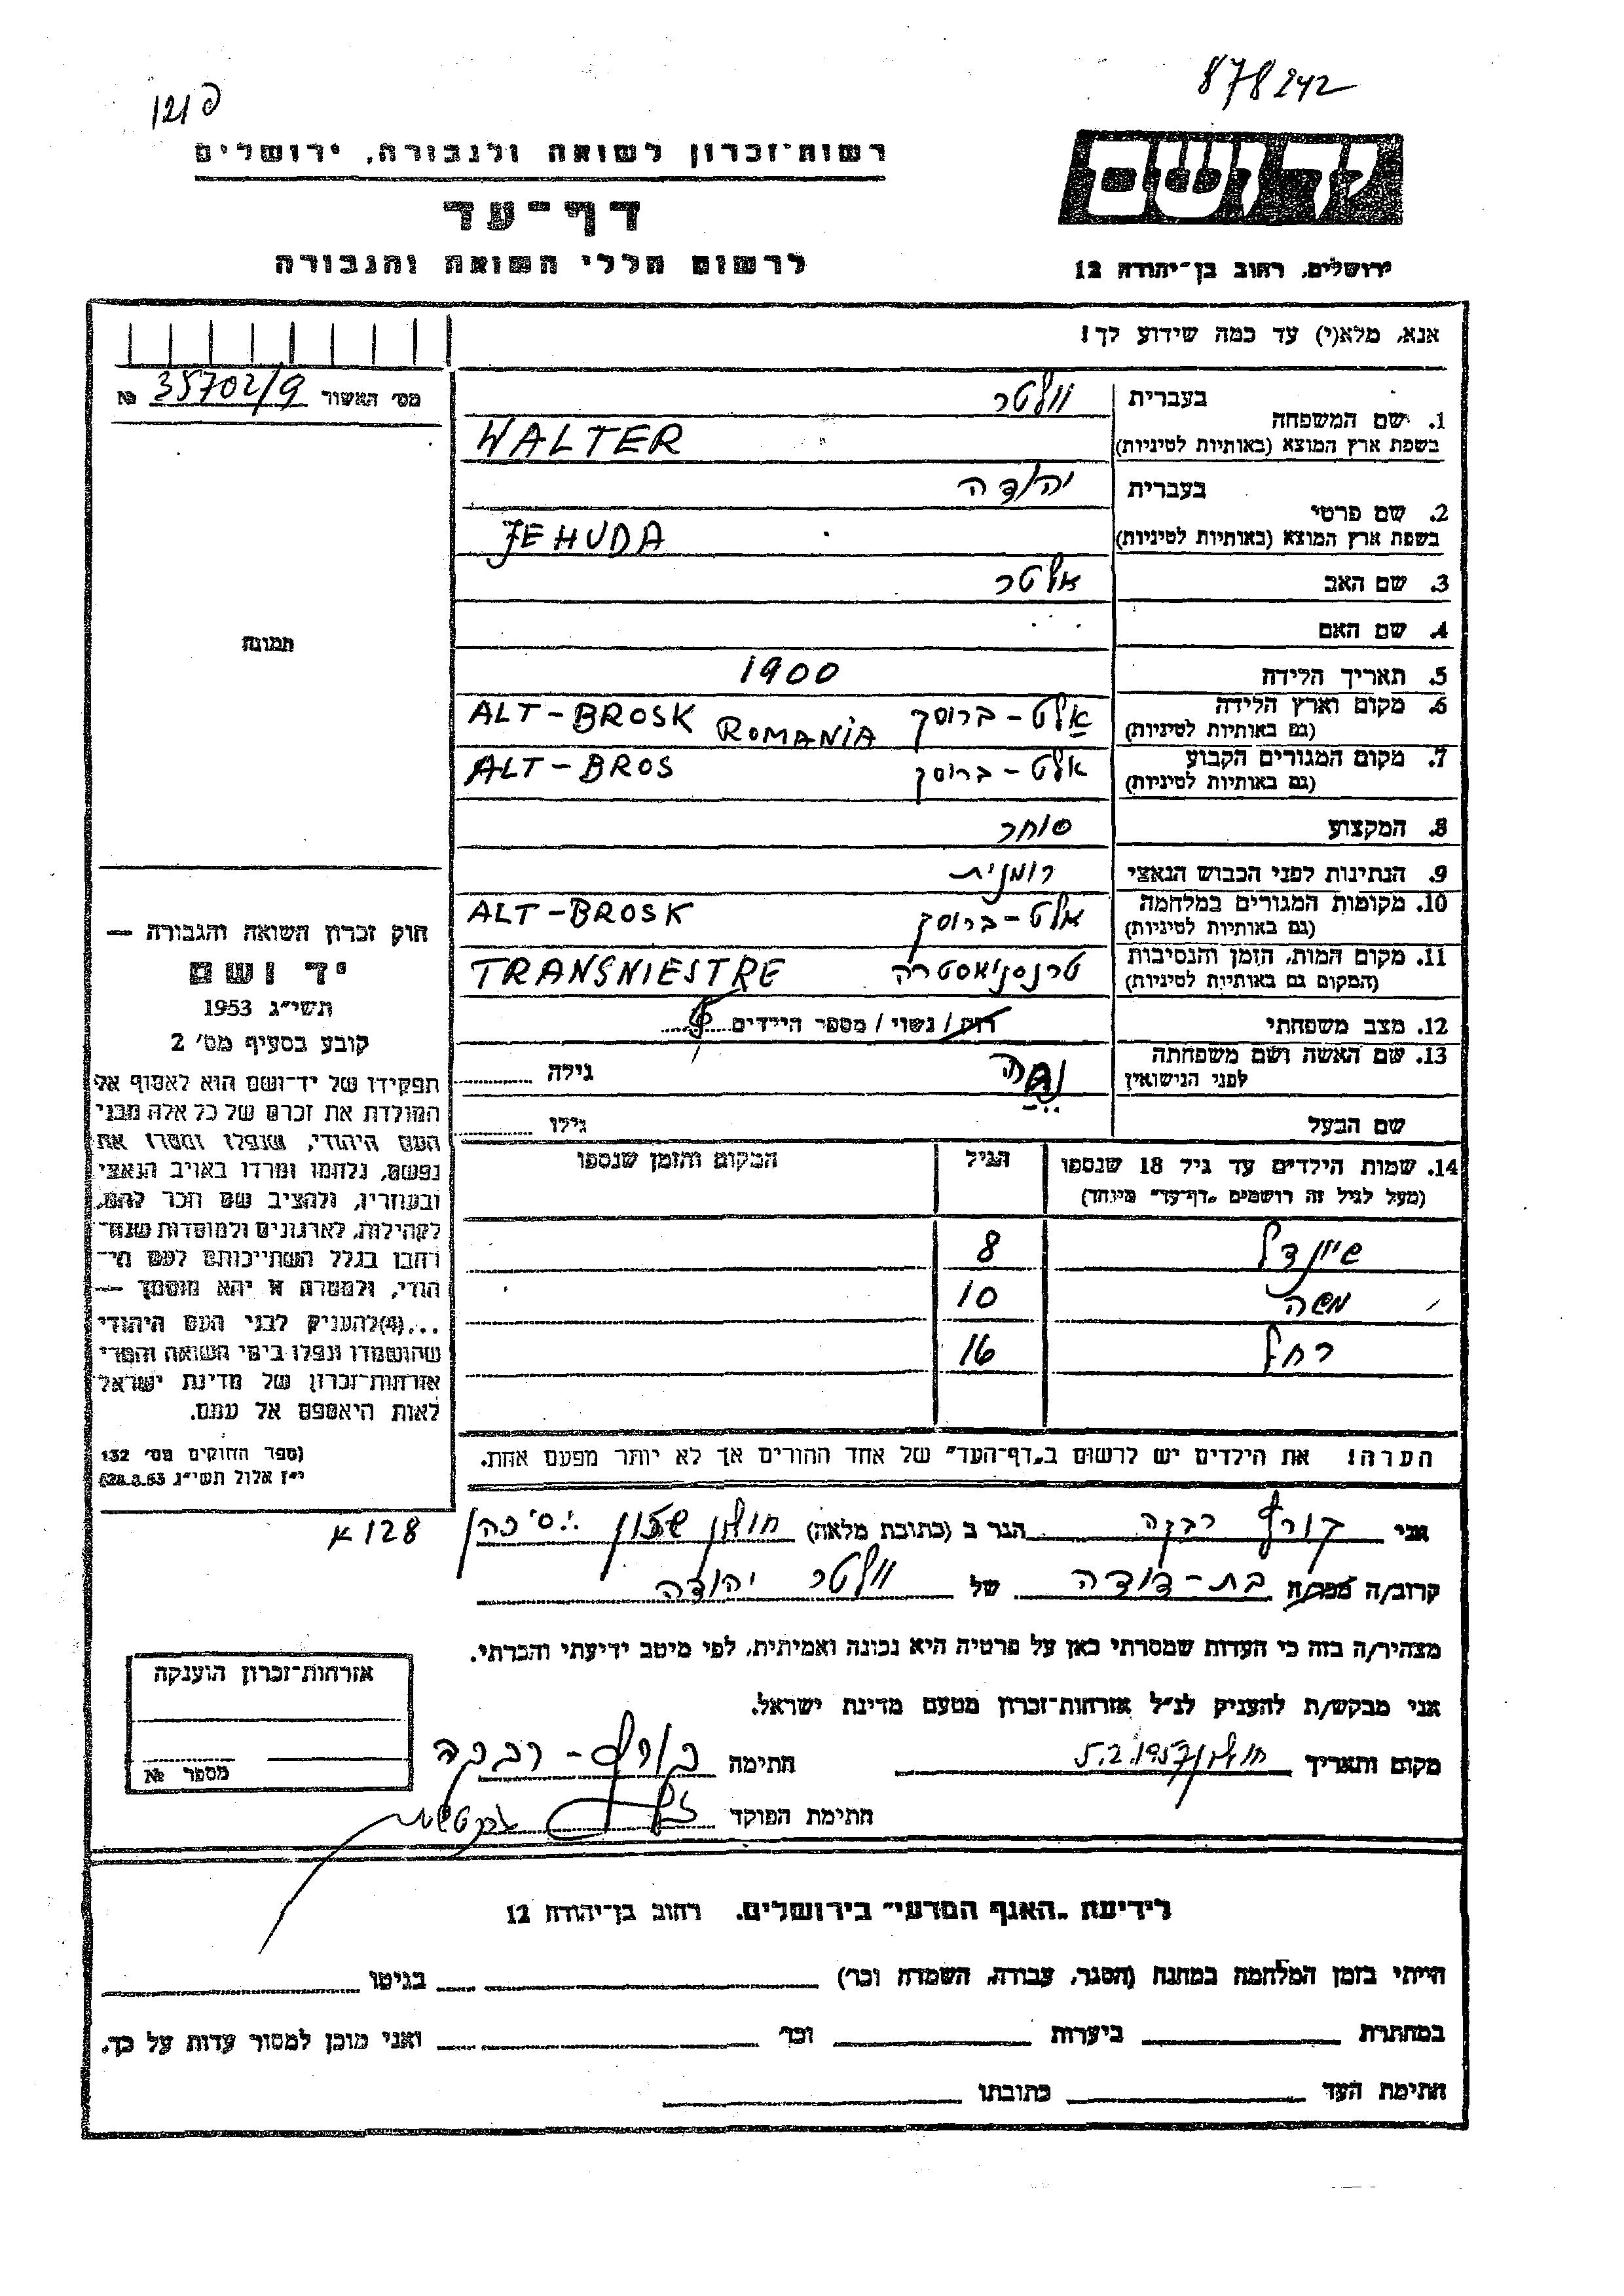 878242
פוזו
רשות־זכרון לשואה ולגבורה, ירושלים
דף־עד
לרשום חללי השואה והגבורה
יד ושם
ירושלים, רחוב בן־יהודה 12
אנא, מלא(י) עד כמה שידוע לך!
מס׳ האשור 35702/9 №
1. שם המשפחה
בעברית וולטר
בשפת ארץ המוצא (באותיות לטיניות) WALTER
2. שם פרטי
בעברית יהודה
בשפת ארץ המוצא (באותיות לטיניות) JEHUDA
3. שם האב אלטר
4. שם האם
5. תאריך הלידה 1900
6. מקום וארץ הלידה (גם באותיות לטיניות) אלט-ברוסק ALT-BROSK ROMANIA
7. מקום המגורים הקבוע (גם באותיות לטיניות) אלט-ברוסק ALT-BROS
8. המקצוע סוחר
9. הנתינות לפני הכבוש הנאצי רומנית
10. מקומות המגורים במלחמה (גם באותיות לטיניות) אלט-ברוסק ALT-BROSK
11. מקום המות, הזמן והנסיבות (המקום גם באותיות לטיניות) טרנסניאסטרה TRANSNIESTRE
12. מצב משפחתי רוק / נשוי / מספר הילדים
13. שם האשה ושם משפחתה לפני הנישואין גילה
שם הבעל גילו
14. שמות הילדים עד גיל 18 שנספו (מעל לגיל זה רושמים „דף־עד״ מיוחד) הגיל המקום והזמן שנספו
שיינדל 8
משה 10
רחל 16
הערה! את הילדים יש לרשום ב„דף־העד״ של אחד ההורים אך לא יותר מפעם אחת.
תמונה
חוק זכרון השואה והגבורה —
יד ושם
תשי״ג 1953
קובע בסעיף מס׳ 2
תפקידו של יד־ושם הוא לאסוף אל
המולדת את זכרם של כל אלה מבני
העם היהודי, שנפלו ומסרו את
נפשם, נלחמו ומרדו באויב הנאצי
ובעוזריו, ולהציב שם וזכר להם,
לקהילות, לארגונים ולמוסדות שנח־
רבו בגלל השתייכותם לעם הי־
הודי, ולמטרה זו יהא מוסמך —
...(4)להעניק לבני העם היהודי
שהושמדו ונפלו בימי השואה והמרי
אזרחות־זכרון של מדינת ישראל
לאות היאספם אל עמם.
(ספר החוקים מס׳ 132
י״ז אלול תשי״ג 28.8.53)
אני קורף רבקה הגר ב (כתובת מלאה) חולון שכון
128 א
קרוב/ה מכר/ה בת-דודה של וולטר יהודה
מצהיר/ה בזה כי העדות שמסרתי כאן על פרטיה היא נכונה ואמיתית, לפי מיטב ידיעתי והכרתי.
אני מבקש/ת להעניק לנ״ל אזרחות־זכרון מטעם מדינת ישראל.
מקום ותאריך חולון חתימה קורף-רבקה
חתימת הפוקד
אזרחות־זכרון הוענקה
מספר №
לידיעת „האגף המדעי״ בירושלים. רחוב בן־יהודה 12
הייתי בזמן המלחמה במחנה (הסגר, עבודה, השמדה וכו׳) בגיטו
במחתרת ביערות וכו׳ ואני מוכן למסור עדות על כך.
חתימת העד כתובתו